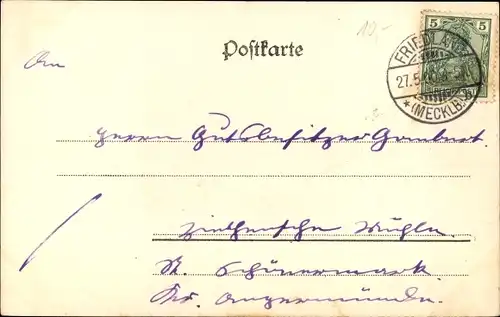 10,-
5 5
Postkarte
FRIEDLAND
27.5.
* (MECKLB.)
An
Herrn Gutsbesitzer
Mühle.
St. Schönermark.
Kr. Angermünde.